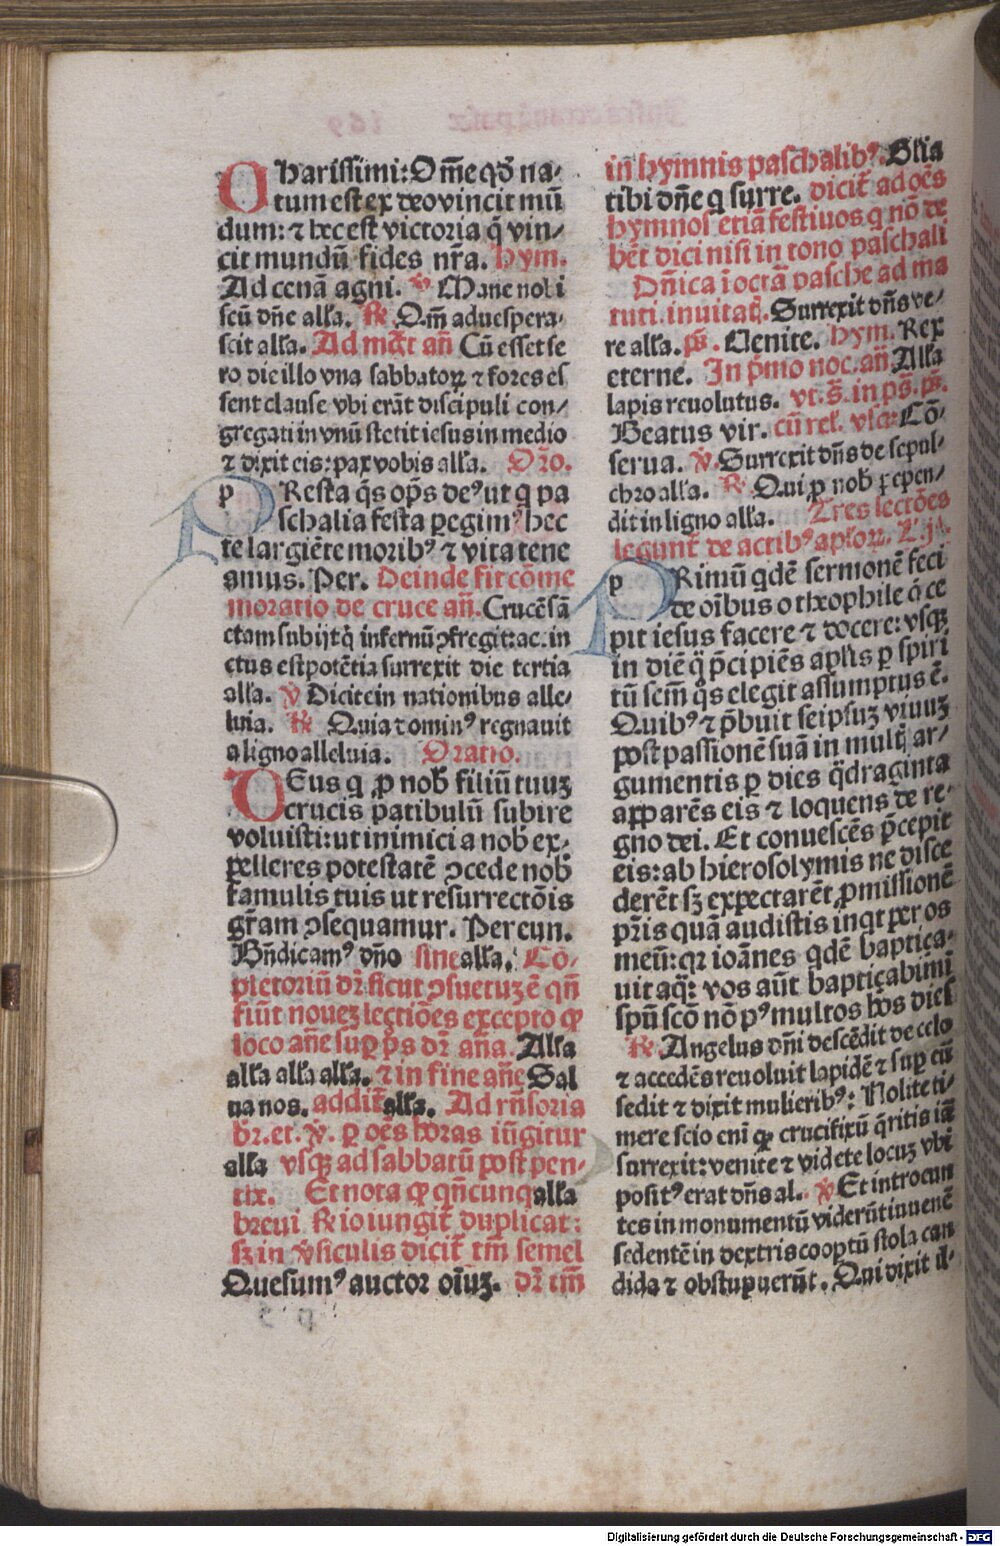 Charissimi: Om̄e qd̄ na-
tum est ex deo vincit mū
dum: ⁊ hec est victoria q̄ vin-
cit mundū fides nr̄a. Hym.
Ad cenā agni. ℣ Mane nobi
scū dn̄e all'a. ℟ Qm̄ aduespera-
scit all'a. Ad mgc̄t an̄ Cū esset se
ro die illo vna sabbatoꝝ ⁊ fores es
sent clause vbi erāt discipuli con-
gregati in vnū stetit iesus in medio
⁊ dixit eis: pax vobis all'a. Oro.
PResta q̄s op̄s de⁹ ut q pa
schalia festa ꝑegim⁹ hec
te largiēte morib⁹ ⁊ vita tene
amus. Per. Deinde fit cōme
moratio de cruce an̄. Crucē sā
ctam subijt q̄ infernū ꝯfregit: ac. in
ctus est potētia surrexit die tertia
all'a. ℣ Dicite in nationibus alle-
luia. ℟ Quia domin⁹ regnauit
a ligno alleluia. Oratio.
DEus q ꝓ nob̄ filiū tuuꝫ
crucis patibulū subire
voluisti: ut inimici a nob̄ ex-
pelleres potestatē ꝯcede nob̄
famulis tuis ut resurrectōis
gr̄am ꝯsequamur. Per eun.
Bn̄dicam⁹ dn̄o sine all'a. Cō-
pletoriū dr̄ sicut ꝯsuetuꝫ ē qn̄
fiūt noueꝫ lectiōes excepto ꝙ
loco an̄e suꝑ p̄s dr̄ an̄a. All'a
all'a all'a all'a. ⁊ in fine an̄e Sal
ua nos. addit̄ all'a. Ad rn̄soria
br̄. et. ℣. ꝑ oēs horas iūgitur
all'a vsqꝫ ad sabbatū post pen-
tix. Et nota ꝙ qn̄cunq all'a
breui ℟io iungit̄ duplicat:
sꝫ in v̄siculis dicit̄ tm̄ semel
Quesum⁹ auctor oīuꝫ. dr̄ tm̄
in hymnis paschalib⁹. Glia
tibi dn̄e q surre. dicit̄ ad oēs
hymnos etiā festiuos q nō de
bēt dici nisi in tono paschali
Dn̄ica ī octā pasche ad ma
tuti. inuitaṫ. Surrexit dn̄s ve-
re all'a. ps̄. Venite. Hym. Rex
eterne. In p̄mo noc. an̄ All'a
lapis reuolutus. vt. s̄. in ps̄. ps̄.
Beatus vir. cū rel. vsc: Cō-
serua. ℣. Surrexit dn̄s de sepul-
chro all'a. ℟. Qui ꝓ nob̄ pepen-
dit in ligno all'a. Tres lectōes
legunt̄ de actib⁹ apl'oꝝ. L. j.
PRimū qdē sermonē feci
de oībus o theophile q̄ ce
pit iesus facere ⁊ docere: vsqꝫ
in diē q̄ p̄cipiēs apl'is ꝑ spiri
tū scm̄ q̄s elegit assumptus ē.
Quib⁹ ⁊ p̄buit seipsuꝫ viuuꝫ
post passionē suā in mult̄ ar-
gumentis ꝑ dies q̄draginta
apparēs eis ⁊ loquens de re-
gno dei. Et conuescēs p̄cepit
eis: ab hierosolymis ne disce
derēt sꝫ expectarēt ꝓmissionē
pr̄is quā audistis inqt per os
meū: qr ioānes qdē baptiça-
uit aq̄: vos aūt baptiçabimī
spū scō nō p⁹ multos hōs dies
℟. Angelus dn̄i descēdit de celo
⁊ accedēs reuoluit lapidē ⁊ suꝑ eū
sedit ⁊ dixit mulierib⁹: Nolite ti-
mere scio eni ꝙ crucifixū q̄ritis iā
surrexit: venite ⁊ videte locuꝫ vbi
posit⁹ erat dn̄s al. ℣ Et introeun
tes in monumentū viderūt iuuenē
sedentē in dextris coopertū stola can
dida ⁊ obstupuerūt. Qui dixit il-
Digitalisierung gefördert durch die Deutsche Forschungsgemeinschaft - DFG